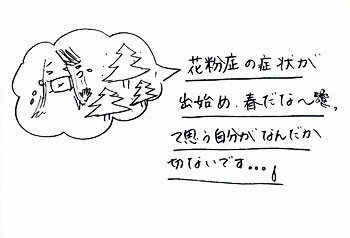 花粉症の症状が
出始め、春だな〜
て思う自分がなんだか
切ないです...。